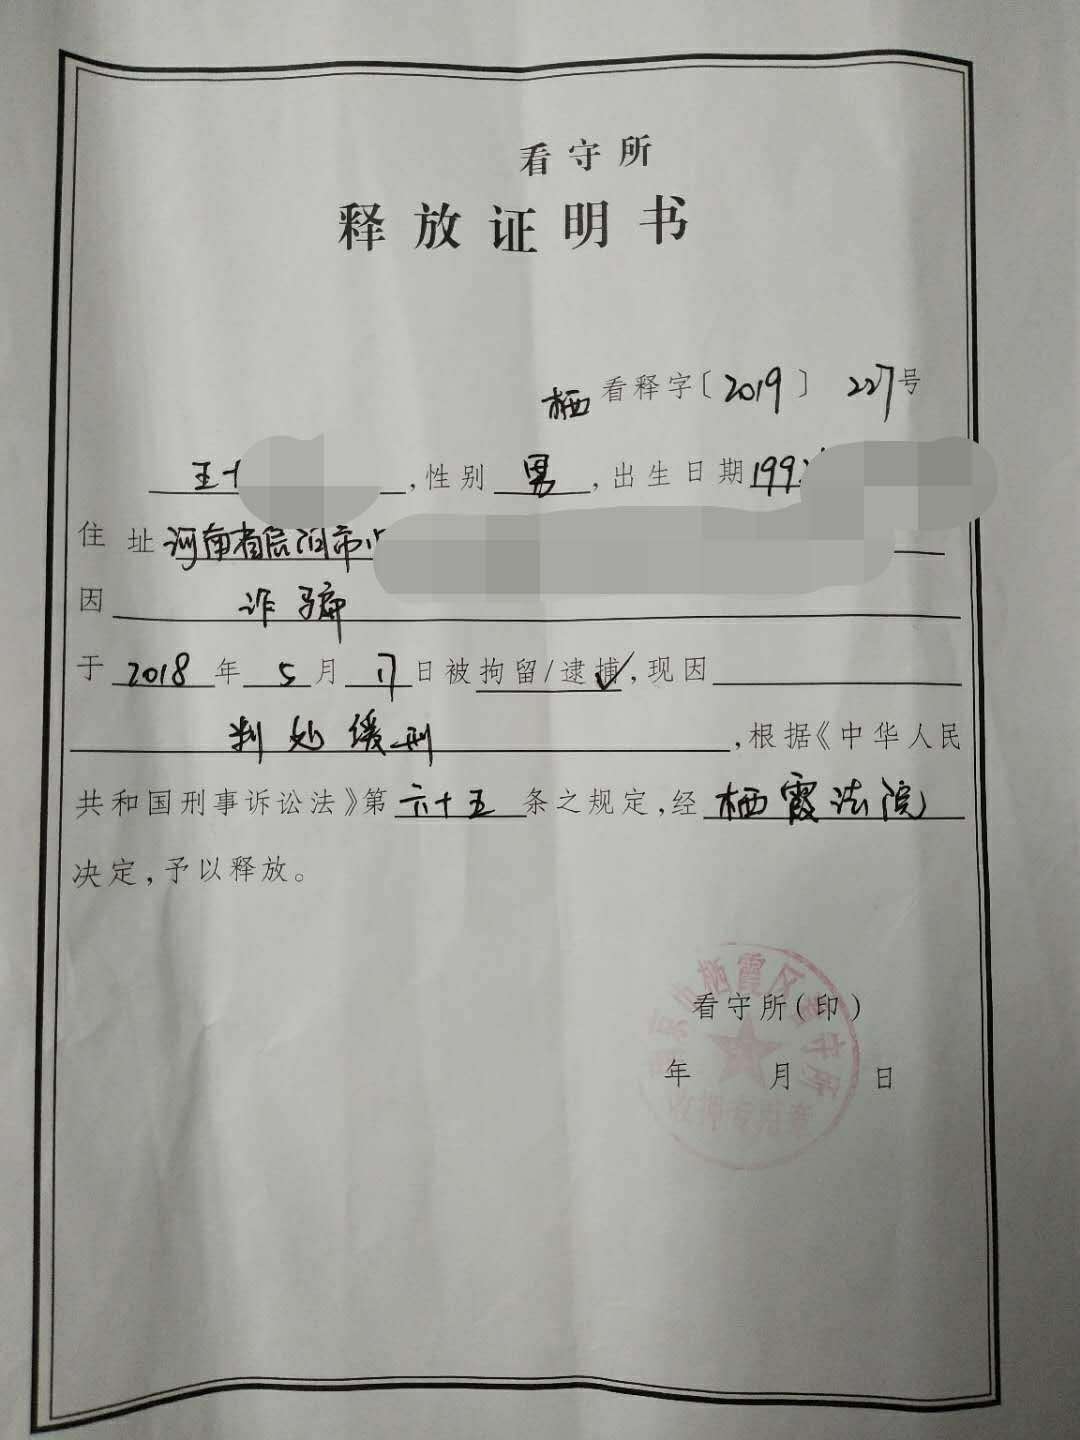 看守所
释放证明书
栖看释字〔2019〕227号
王，性别 男，出生日期199
住址河南省信阳市
因 诈骗
于2018年5月17日被拘留/逮捕✓，现因
判处缓刑，根据《中华人民
共和国刑事诉讼法》第六十五条之规定，经栖霞法院
决定，予以释放。
栖霞区看守所
看守所（印）
年 月 日
收押专用章